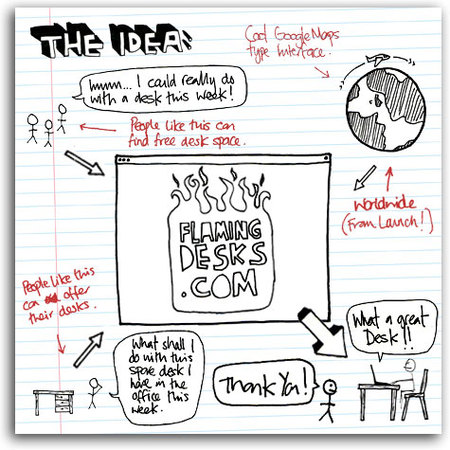 THE IDEA:
Cool GoogleMaps
type Interface.
hmm... I could really do
with a desk this week!
People like this can
find free desk space.
Worldwide
(From Launch!)
FLAMING
DESKS
.COM
People like this
can offer
their desks.
What a great
Desk!!
What shall I
do with this
spare desk I
have in the
office this
week.
Thank You!